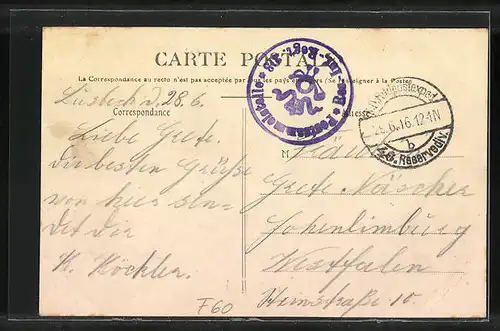 CARTE POSTALE
La Correspondance au recto n'est pas acceptée par tous les pays étrangers (Se renseigner à la Poste)
d. 28.6.
Correspondance
Liebe Grete.
Die besten Grüße
von hier sen-
det dir
H. Köchler.
F60
Inf. Regt.
Feldpostexped.
6.16.12-1N
b
Reservediv.
M
Fräulein
Grete Käscher
Hohenlimburg
Westfalen
Steinstraße 10.